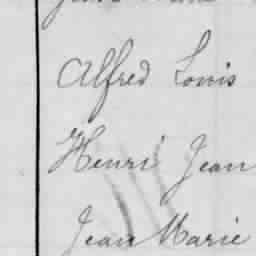 Alfred Louis
Henri Jean
Jean Marie